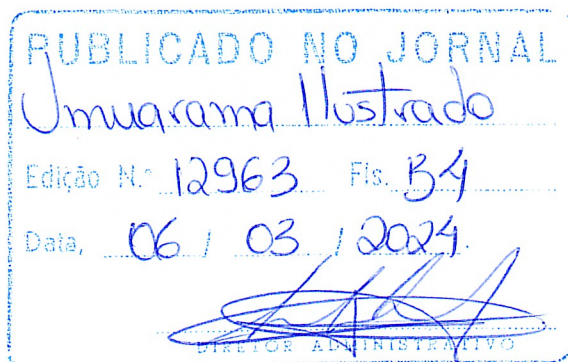 PUBLICADO NO JORNAL
Umuarama Ilustrado
Edição N.º 12963 Fls. B4
Data, 06 / 03 / 2024.
DIRETOR ADMINISTRATIVO